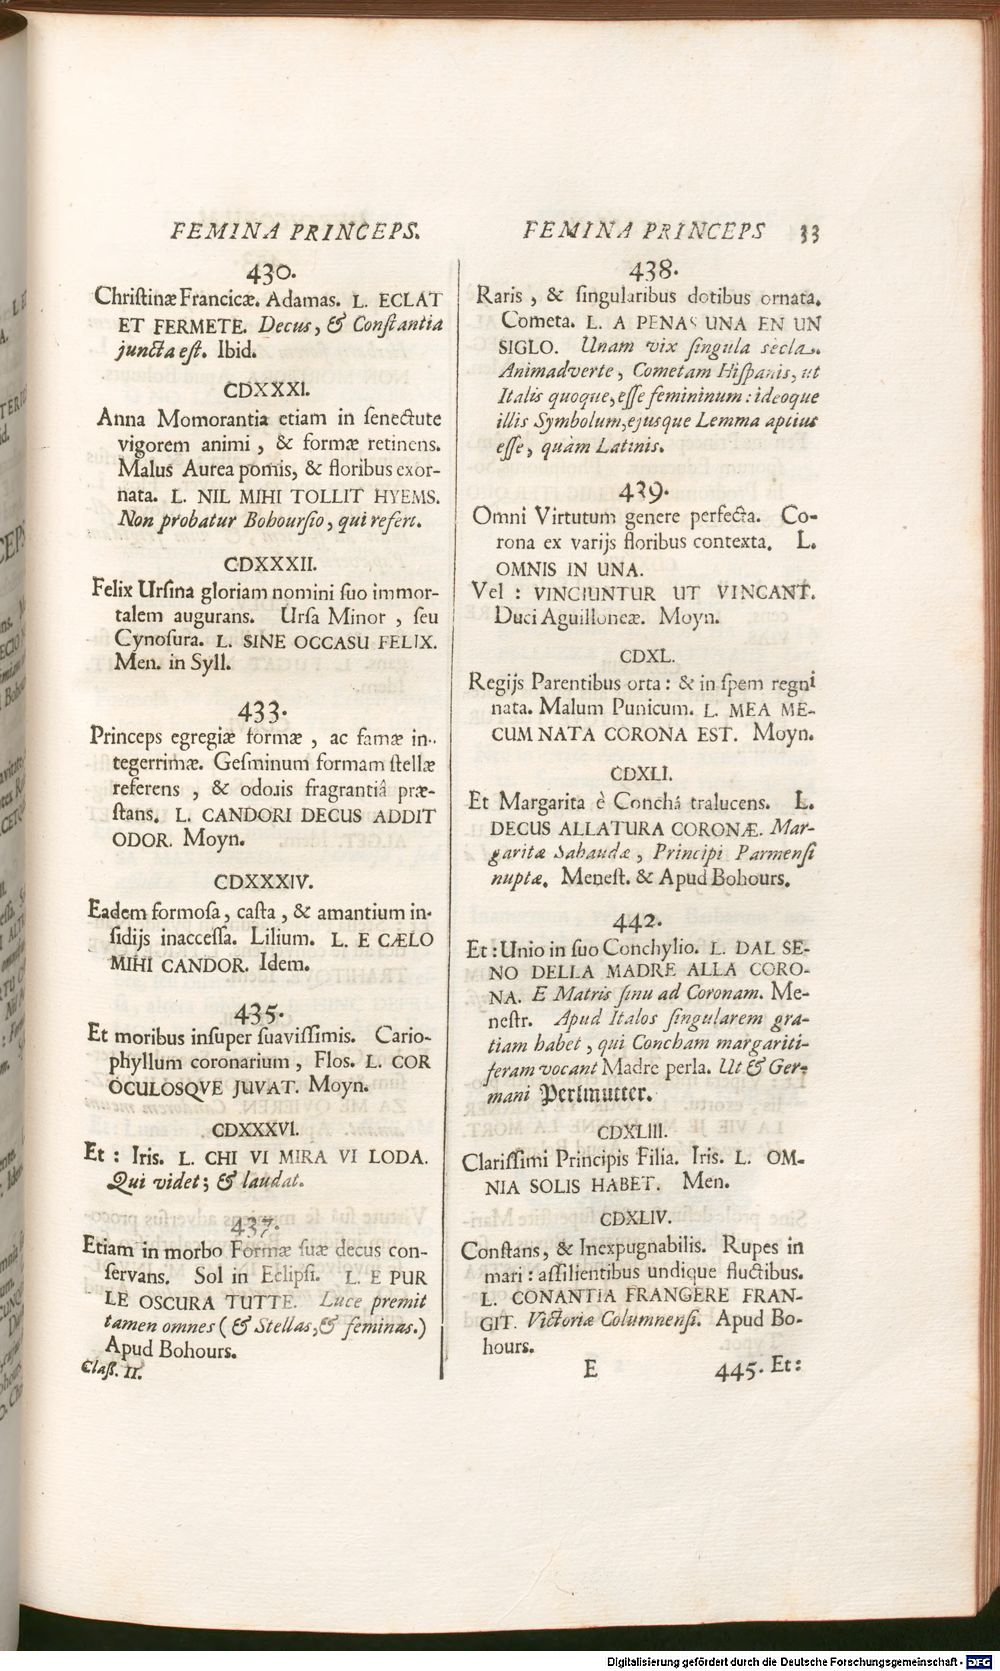 FEMINA PRINCEPS.
430.
Chriſtinæ Francicæ. Adamas. L. ECLAT
ET FERMETE. Decus, & Conſtantia
juncta eſt. Ibid.
CDXXXI.
Anna Momorantia etiam in ſenectute
vigorem animi, & formæ retinens.
Malus Aurea pomis, & floribus exor-
nata. L. NIL MIHI TOLLIT HYEMS.
Non probatur Bohourſio, qui refert.
CDXXXII.
Felix Urſina gloriam nomini ſuo immor-
talem augurans. Urſa Minor, ſeu
Cynoſura. L. SINE OCCASU FELIX.
Men. in Syll.
433.
Princeps egregiæ formæ, ac famæ in-
tegerrimæ. Geſminum formam ſtellæ
referens, & odoris fragrantiâ præ-
ſtans. L. CANDORI DECUS ADDIT
ODOR. Moyn.
CDXXXIV.
Eadem formoſa, caſta, & amantium in-
ſidijs inacceſſa. Lilium. L. E CÆLO
MIHI CANDOR. Idem.
435.
Et moribus inſuper ſuaviſſimis. Cario-
phyllum coronarium, Flos. L. COR
OCULOSQVE JUVAT. Moyn.
CDXXXVI.
Et: Iris. L. CHI VI MIRA VI LODA.
Qui videt; & laudat.
437.
Etiam in morbo Formæ ſuæ decus con-
ſervans. Sol in Eclipſi. L. E PUR
LE OSCURA TUTTE. Luce premit
tamen omnes (& Stellas, & feminas.)
Apud Bohours.
Claſſ. II.
FEMINA PRINCEPS 33
438.
Raris, & ſingularibus dotibus ornata.
Cometa. L. A PENAS UNA EN UN
SIGLO. Unam vix ſingula secla.
Animadverte, Cometam Hiſpanis, ut
Italis quoque, eſſe femininum: ideoque
illis Symbolum, ejusque Lemma aptius
eſſe, quàm Latinis.
439.
Omni Virtutum genere perfecta. Co-
rona ex varijs floribus contexta. L.
OMNIS IN UNA.
Vel: VINCIUNTUR UT VINCANT.
Duci Aguilloneæ. Moyn.
CDXL.
Regijs Parentibus orta: & in ſpem regni
nata. Malum Punicum. L. MEA ME-
CUM NATA CORONA EST. Moyn.
CDXLI.
Et Margarita è Conchá tralucens. L.
DECUS ALLATURA CORONÆ. Mar-
garitæ Sabaudæ, Principi Parmenſi
nuptæ. Meneſt. & Apud Bohours.
442.
Et: Unio in ſuo Conchylio. L. DAL SE-
NO DELLA MADRE ALLA CORO-
NA. E Matris ſinu ad Coronam. Me-
neſtr. Apud Italos ſingularem gra-
tiam habet, qui Concham margariti-
feram vocant Madre perla. Ut & Ger-
mani Perlmutter.
CDXLIII.
Clariſſimi Principis Filia. Iris. L. OM-
NIA SOLIS HABET. Men.
CDXLIV.
Conſtans, & Inexpugnabilis. Rupes in
mari: aſſilientibus undique fluctibus.
L. CONANTIA FRANGERE FRAN-
GIT. Victoriæ Columnenſi. Apud Bo-
hours.
E 445. Et:
Digitalisierung gefördert durch die Deutsche Forschungsgemeinschaft - DFG